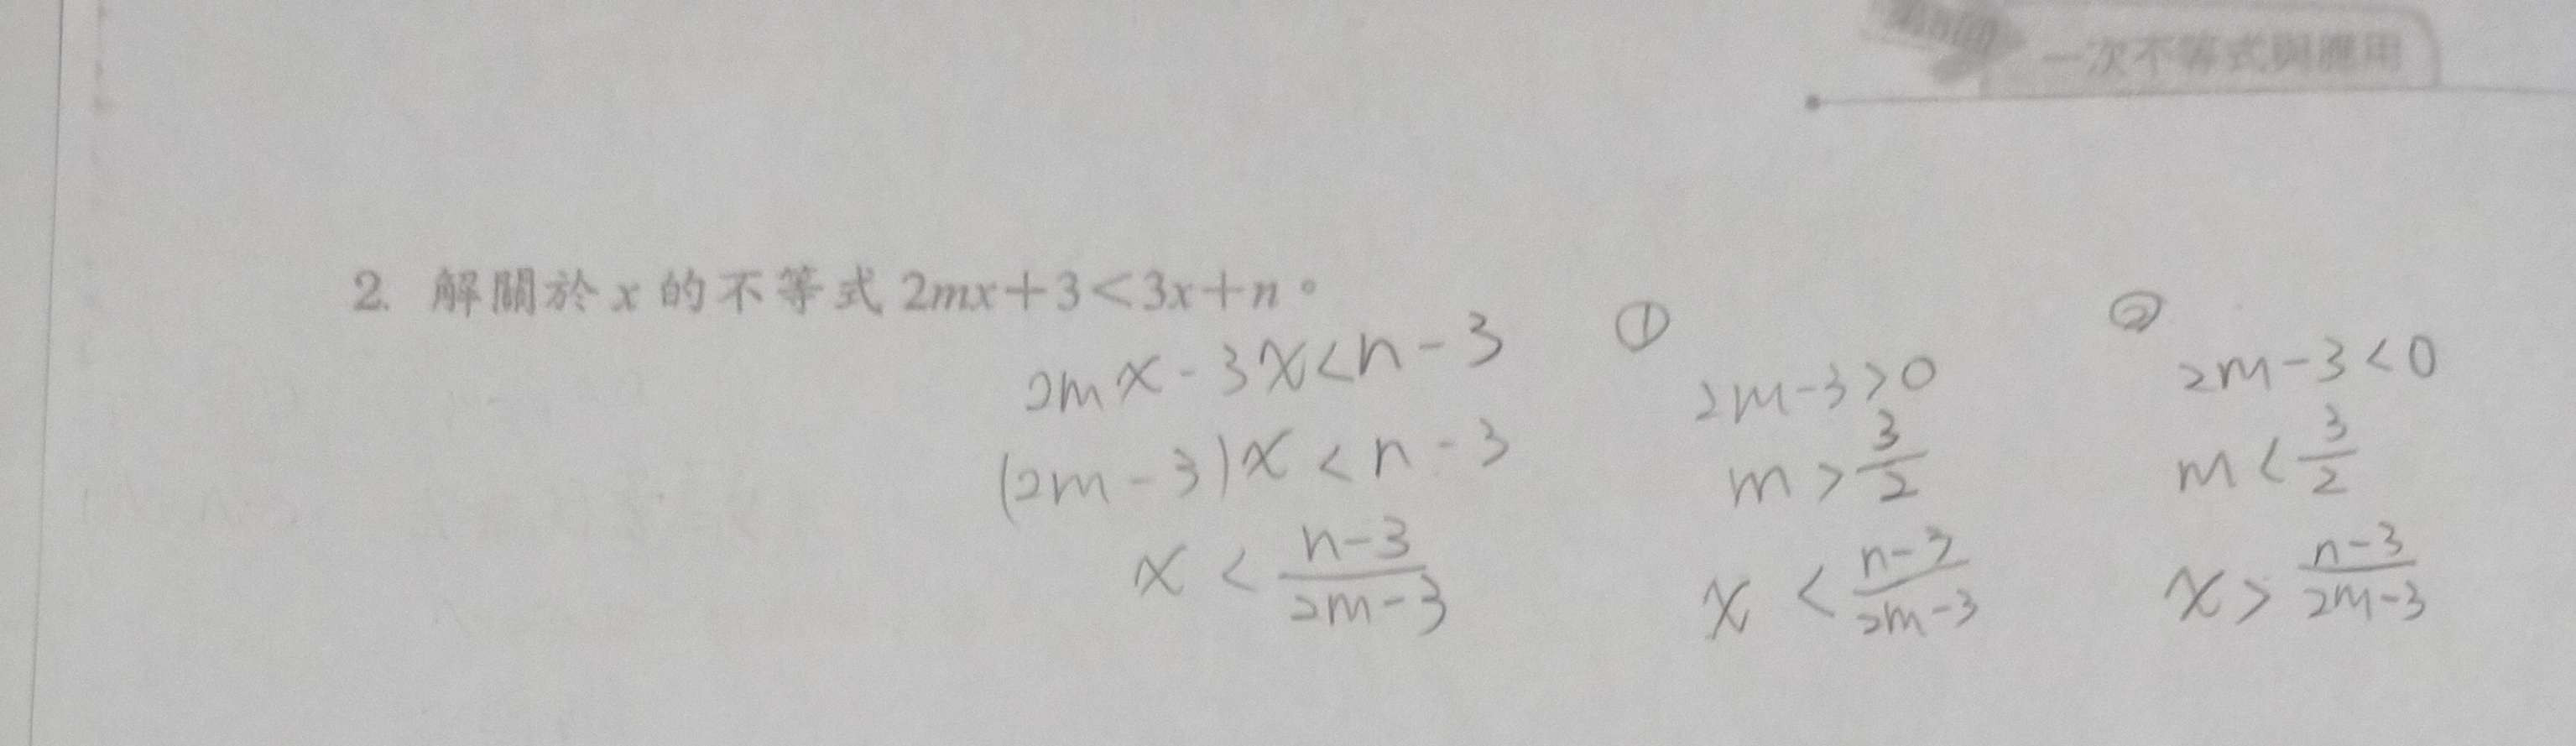 一次不等式與應用
2. 解關於 x 的不等式 2mx+3<3x+n。
2mx-3x<n-3
(2m-3)x<n-3
x < \frac{n-3}{2m-3}
①
2m-3>0
m > \frac{3}{2}
x < \frac{n-3}{2m-3}
②
2m-3<0
m < \frac{3}{2}
x > \frac{n-3}{2m-3}